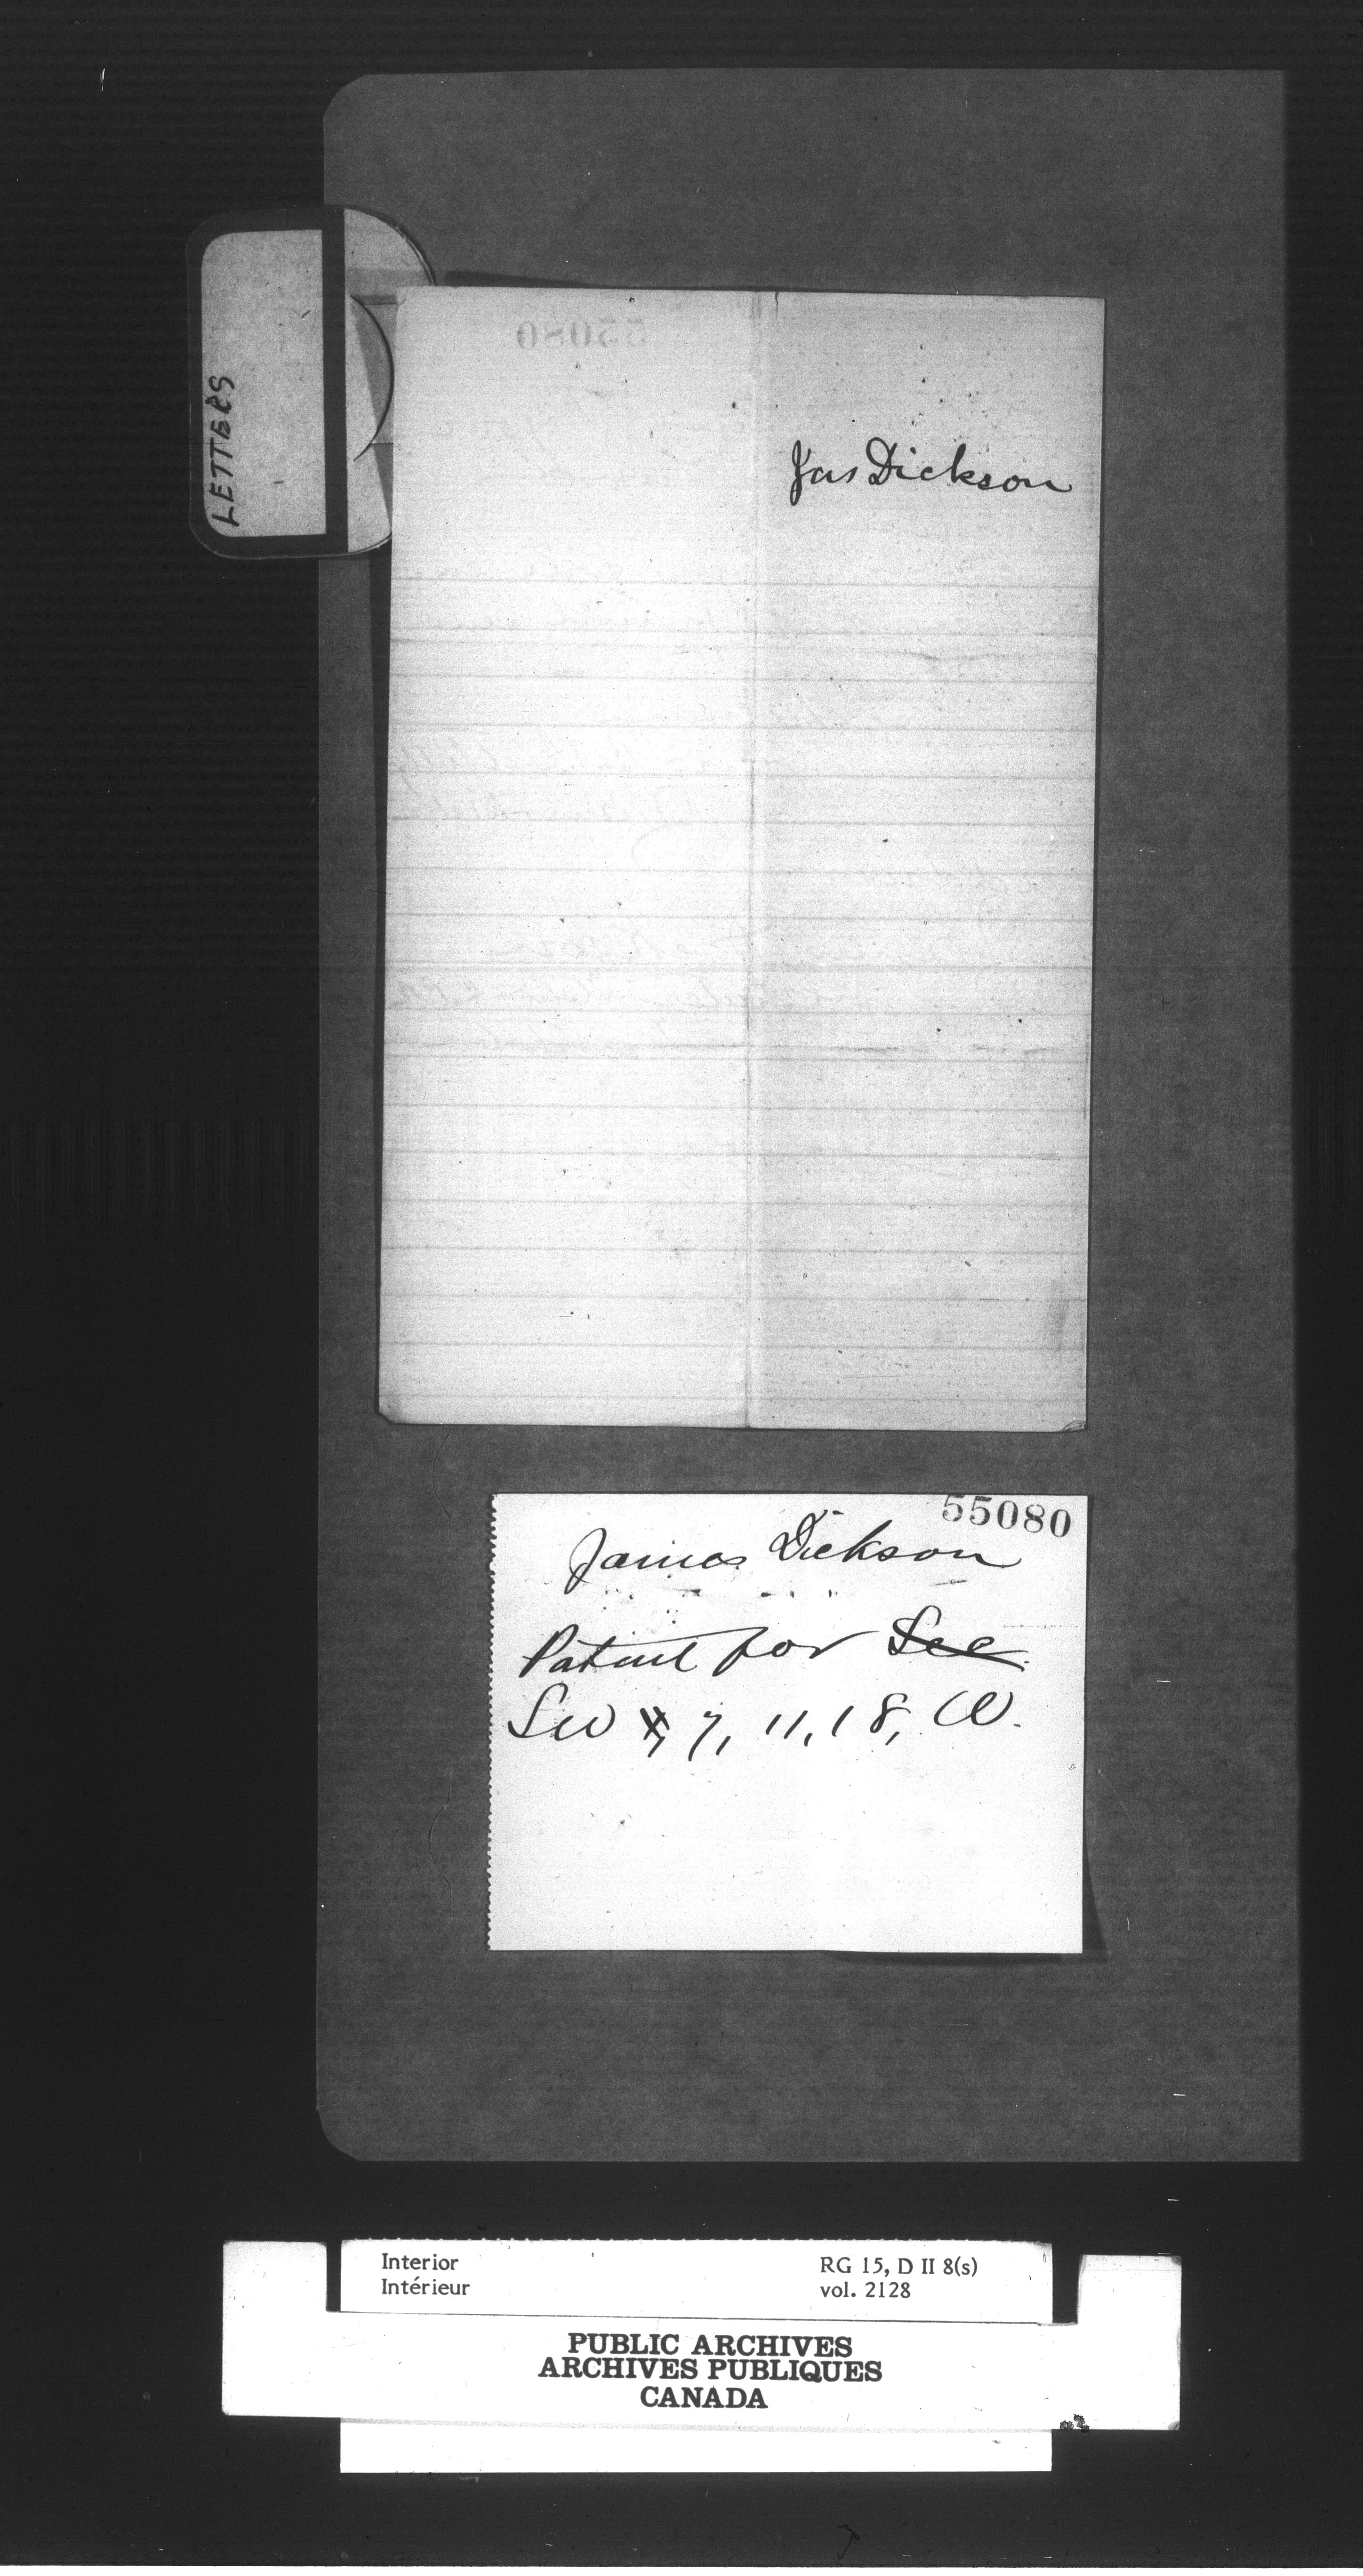 LETTERS
55080
Jas Dickson
55080
James Dickson
Patent for Sec.
SW 7, 11, 18, W.
Interior
Intérieur
RG 15, D II 8(s)
vol. 2128
PUBLIC ARCHIVES
ARCHIVES PUBLIQUES
CANADA